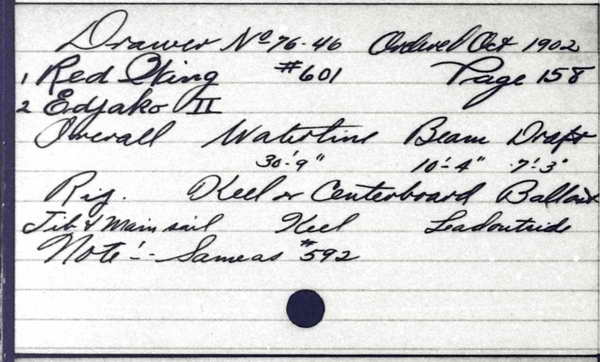 Drawer No 76-46 Ordered Oct 1902
1 Red Wing #601 Page 158
2 Edjako II
Overall Waterline Beam Draft
30'-9" 10'-4" 7'-3"
Rig. Keel or Centerboard Ballast
Jib & Mainsail Keel Lead outside
Note:- Same as #592